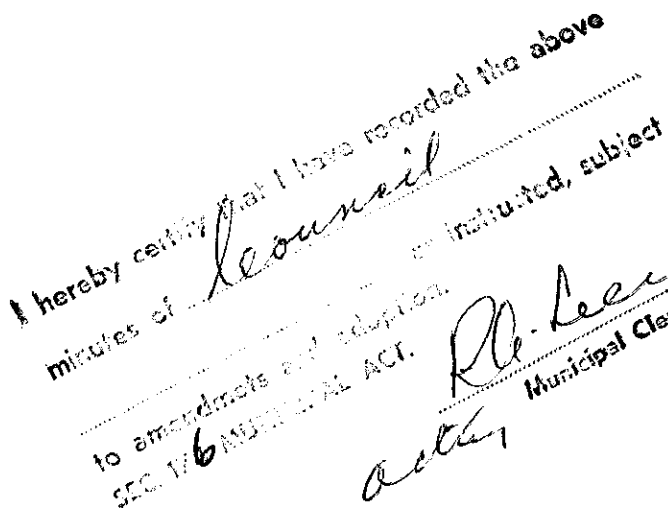 I hereby certify that I have recorded the above
minutes of Council
as instructed, subject
to amendments and adoption.
SEC. 176 MUNICIPAL ACT.
R.A. Lee
acting Municipal Cle